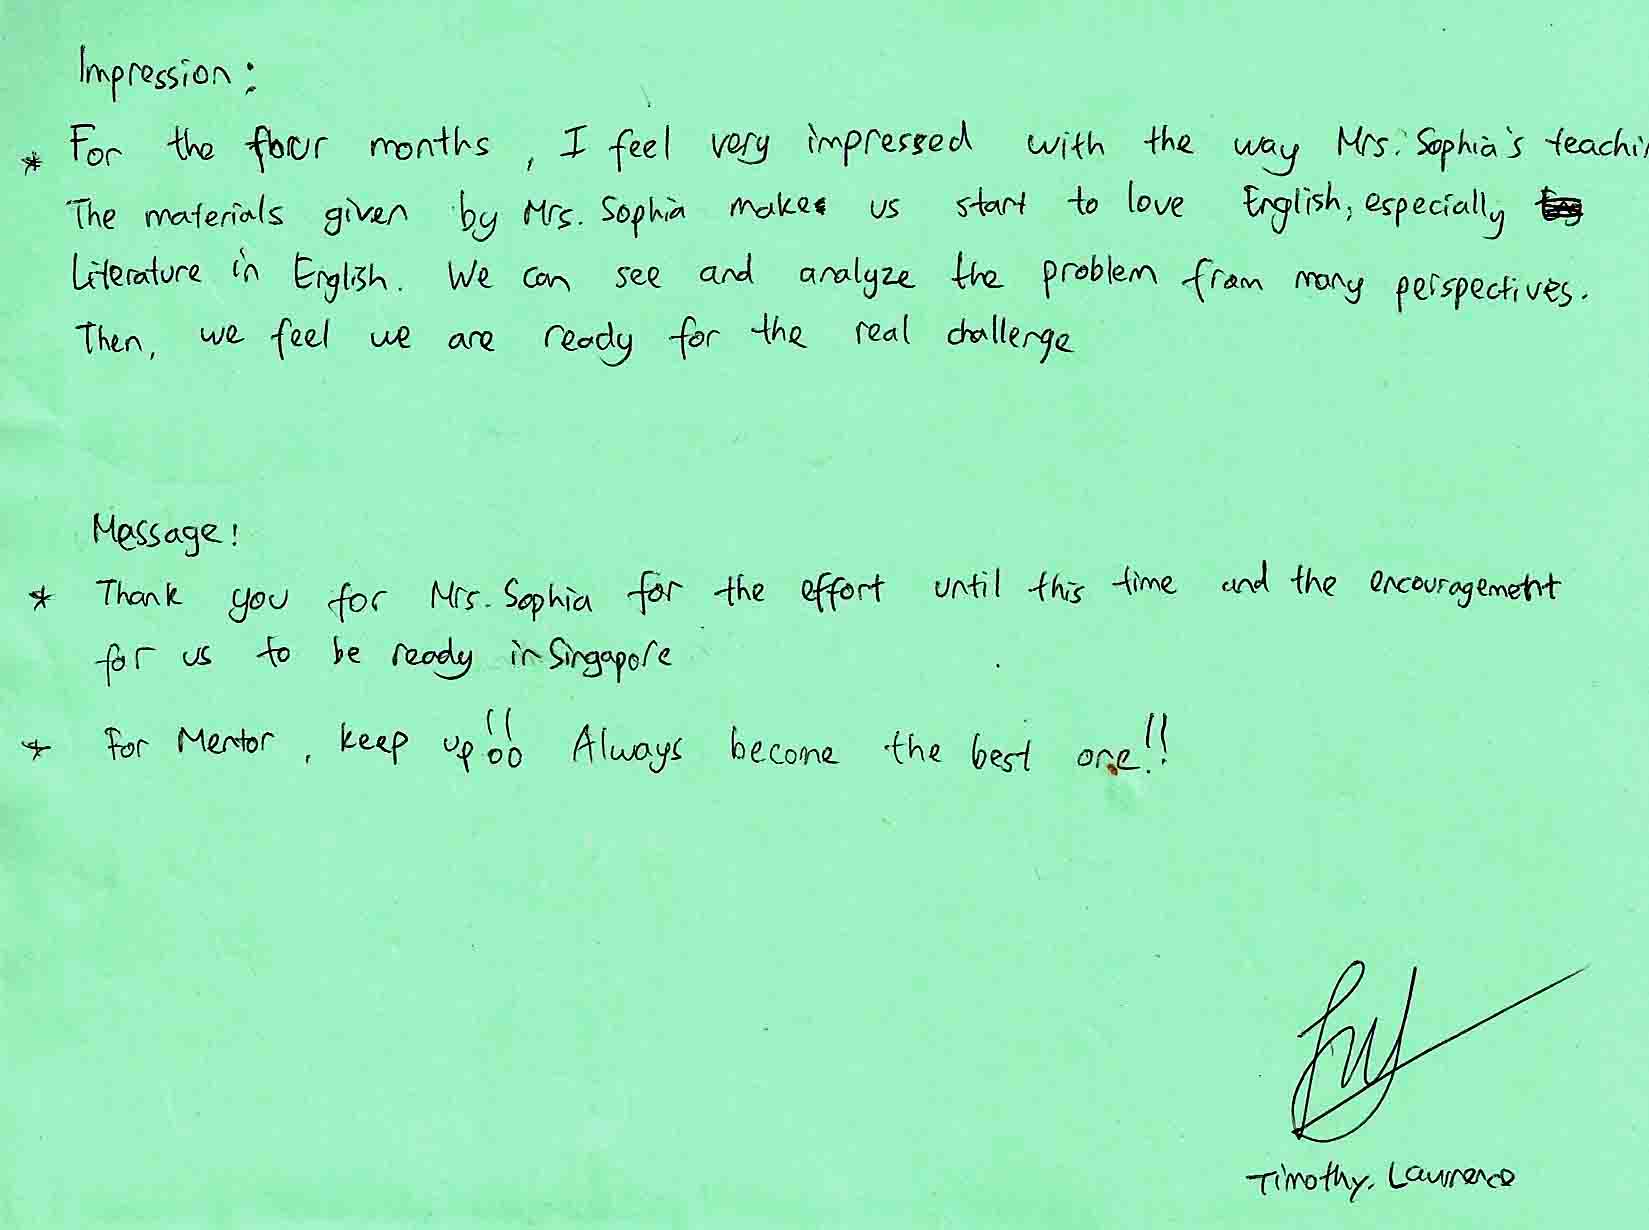 Impression :
* For the four months , I feel very impressed with the way Mrs. Sophia's teachi
The materials given by Mrs. Sophia makes us start to love English, especially
Literature in English. We can see and analyze the problem from many perspectives.
Then, we feel we are ready for the real challenge
Message !
* Thank you for Mrs. Sophia for the effort until this time and the encouragement
for us to be ready in Singapore
* For Mentor , keep up !! Always become the best one !!
Timothy. Lawrence